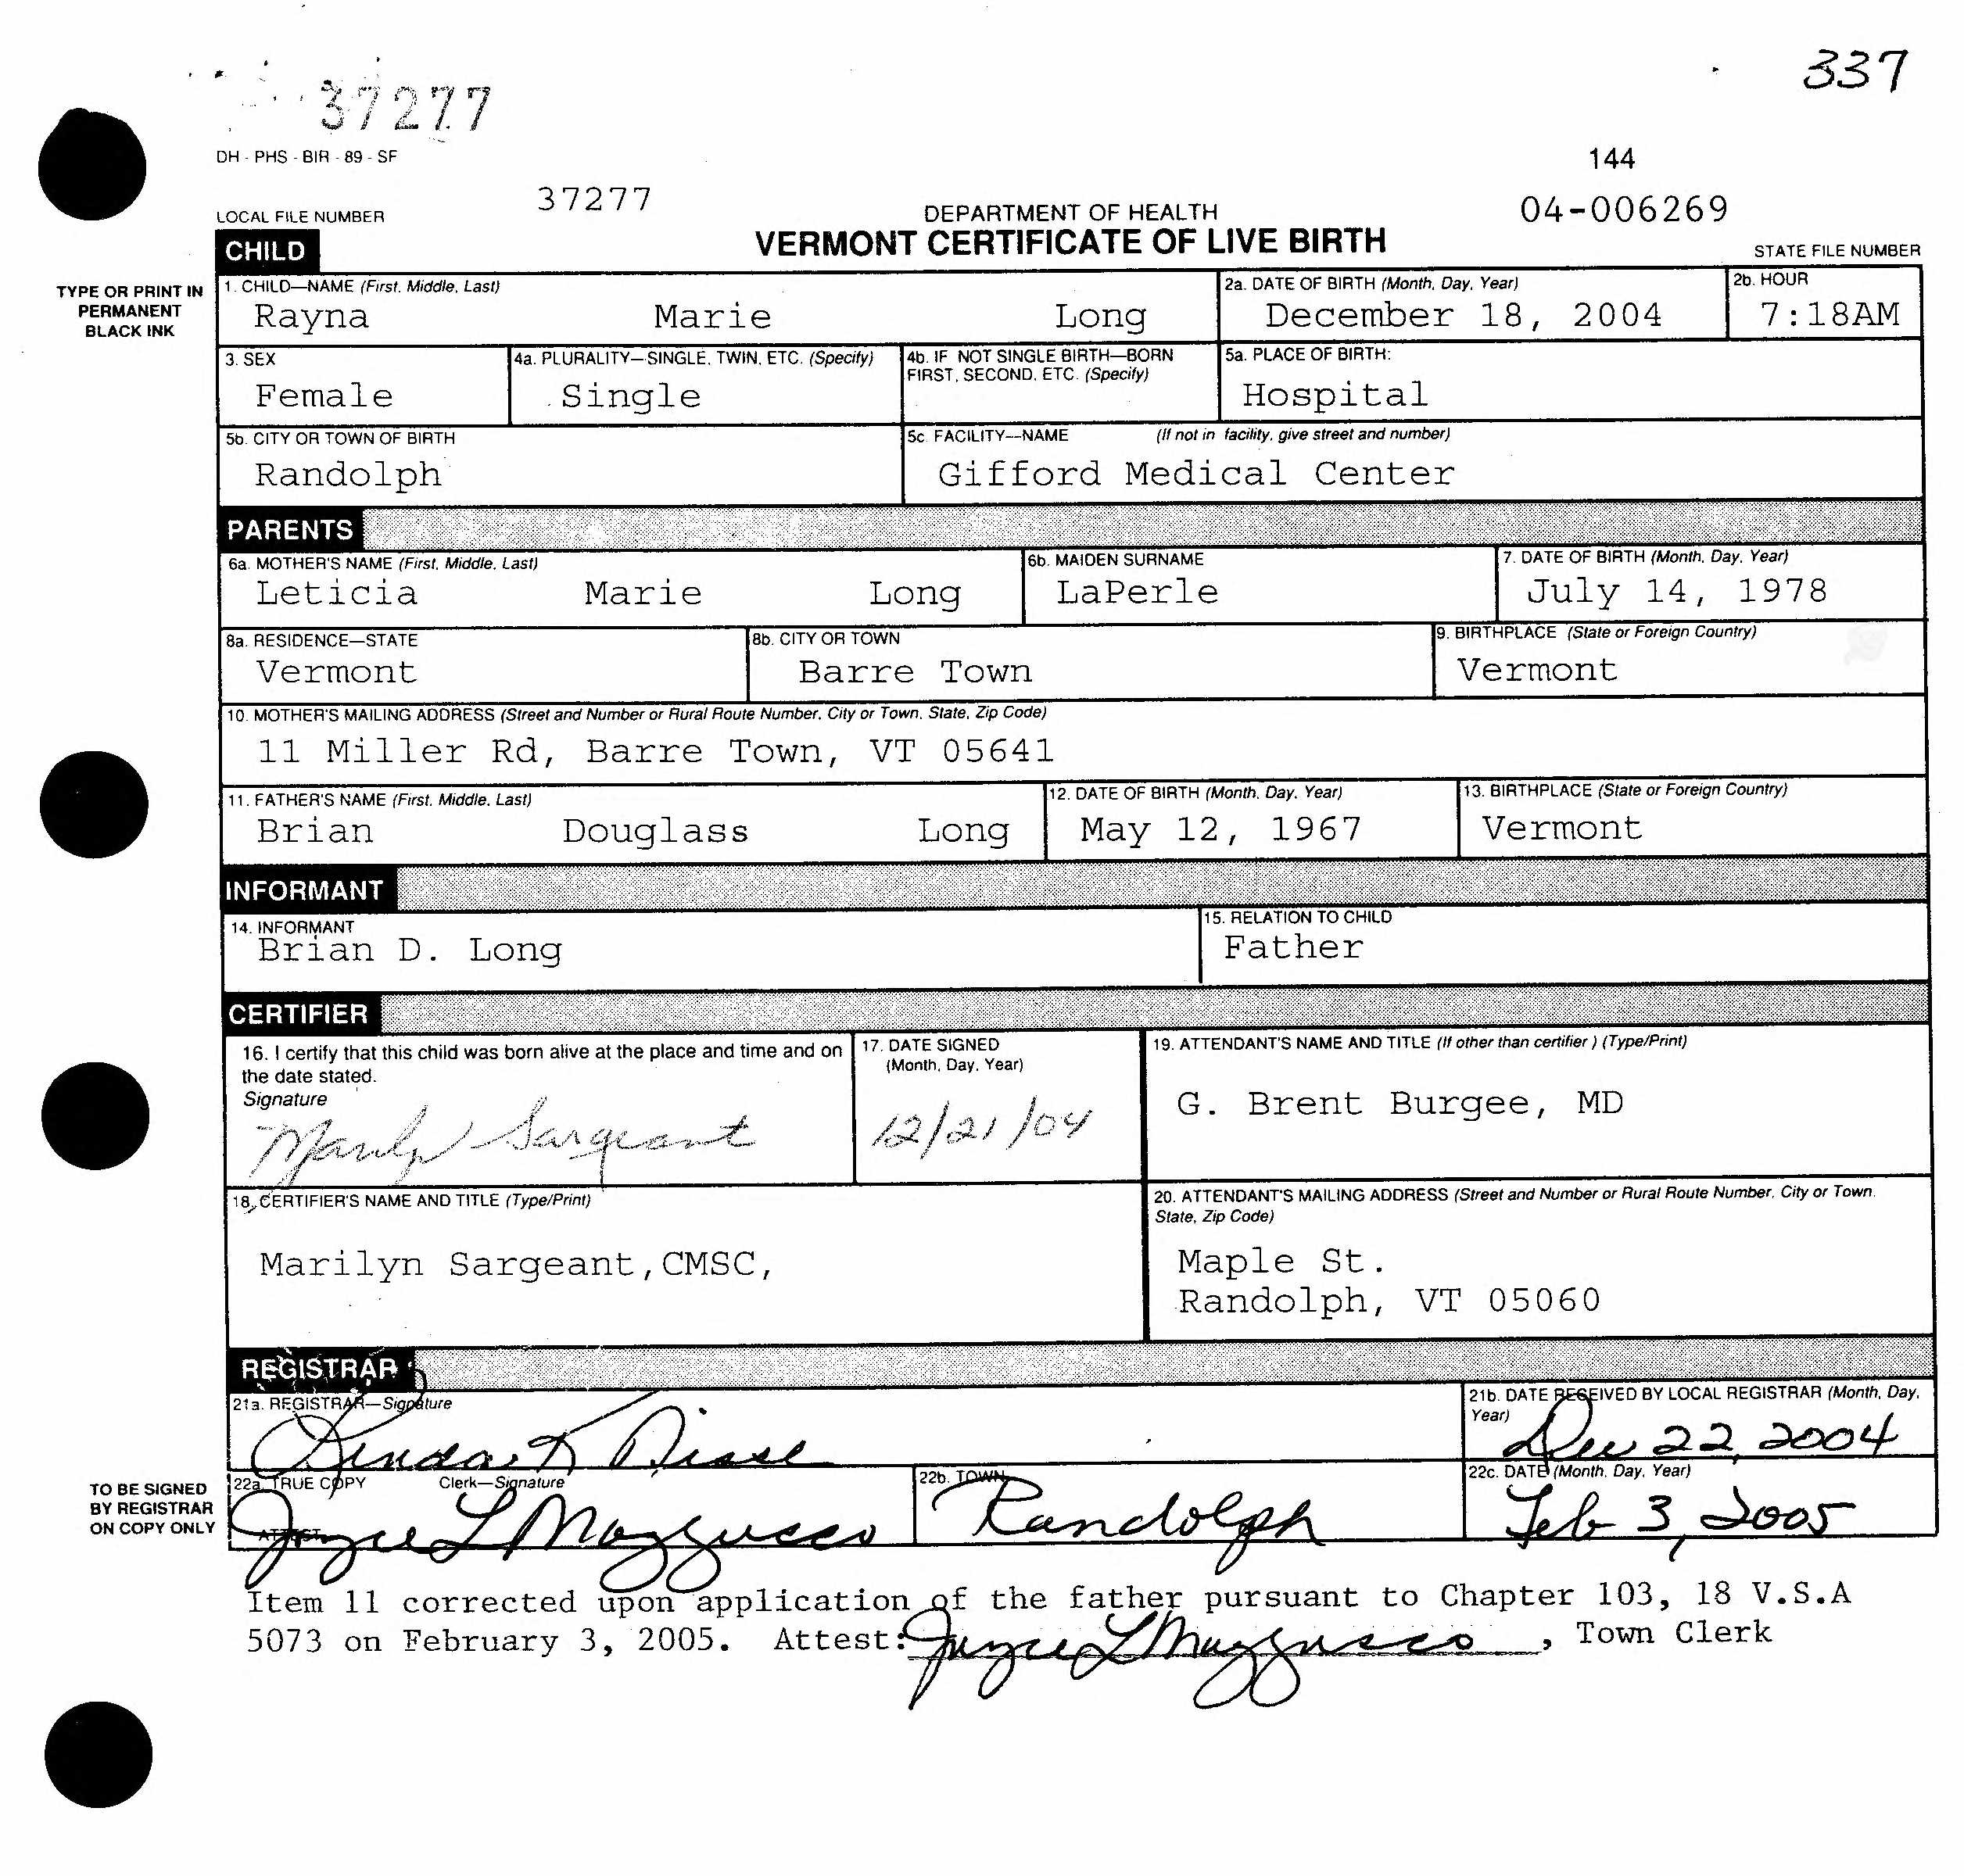 337
37277
DH - PHS - BIR - 89 - SF
144
LOCAL FILE NUMBER 37277 DEPARTMENT OF HEALTH 04-006269
CHILD VERMONT CERTIFICATE OF LIVE BIRTH STATE FILE NUMBER
TYPE OR PRINT IN
PERMANENT
BLACK INK
1. CHILD—NAME (First, Middle, Last) 2a. DATE OF BIRTH (Month, Day, Year) 2b. HOUR
Rayna Marie Long December 18, 2004 7:18AM
3. SEX 4a. PLURALITY—SINGLE, TWIN, ETC. (Specify) 4b. IF NOT SINGLE BIRTH—BORN 5a. PLACE OF BIRTH:
FIRST, SECOND, ETC. (Specify)
Female Single Hospital
5b. CITY OR TOWN OF BIRTH 5c. FACILITY—NAME (If not in facility, give street and number)
Randolph Gifford Medical Center
PARENTS
6a. MOTHER'S NAME (First, Middle, Last) 6b. MAIDEN SURNAME 7. DATE OF BIRTH (Month, Day, Year)
Leticia Marie Long LaPerle July 14, 1978
8a. RESIDENCE—STATE 8b. CITY OR TOWN 9. BIRTHPLACE (State or Foreign Country)
Vermont Barre Town Vermont
10. MOTHER'S MAILING ADDRESS (Street and Number or Rural Route Number, City or Town, State, Zip Code)
11 Miller Rd, Barre Town, VT 05641
11. FATHER'S NAME (First, Middle, Last) 12. DATE OF BIRTH (Month, Day, Year) 13. BIRTHPLACE (State or Foreign Country)
Brian Douglass Long May 12, 1967 Vermont
INFORMANT
14. INFORMANT 15. RELATION TO CHILD
Brian D. Long Father
CERTIFIER
16. I certify that this child was born alive at the place and time and on
the date stated.
Signature
Marilyn Sargeant
17. DATE SIGNED
(Month, Day, Year)
12/21/04
19. ATTENDANT'S NAME AND TITLE (If other than certifier) (Type/Print)
G. Brent Burgee, MD
18. CERTIFIER'S NAME AND TITLE (Type/Print)
Marilyn Sargeant,CMSC,
20. ATTENDANT'S MAILING ADDRESS (Street and Number or Rural Route Number, City or Town,
State, Zip Code)
Maple St.
Randolph, VT 05060
REGISTRAR
21a. REGISTRAR—Signature
Linda K
21b. DATE RECEIVED BY LOCAL REGISTRAR (Month, Day,
Year)
Dec 22, 2004
TO BE SIGNED
BY REGISTRAR
ON COPY ONLY
22a. TRUE COPY Clerk—Signature
ATTEST
Joyce L Mazzucco
22b. TOWN
Randolph
22c. DATE (Month, Day, Year)
Feb 3, 2005
Item 11 corrected upon application of the father pursuant to Chapter 103, 18 V.S.A
5073 on February 3, 2005. Attest: Joyce L Mazzucco, Town Clerk